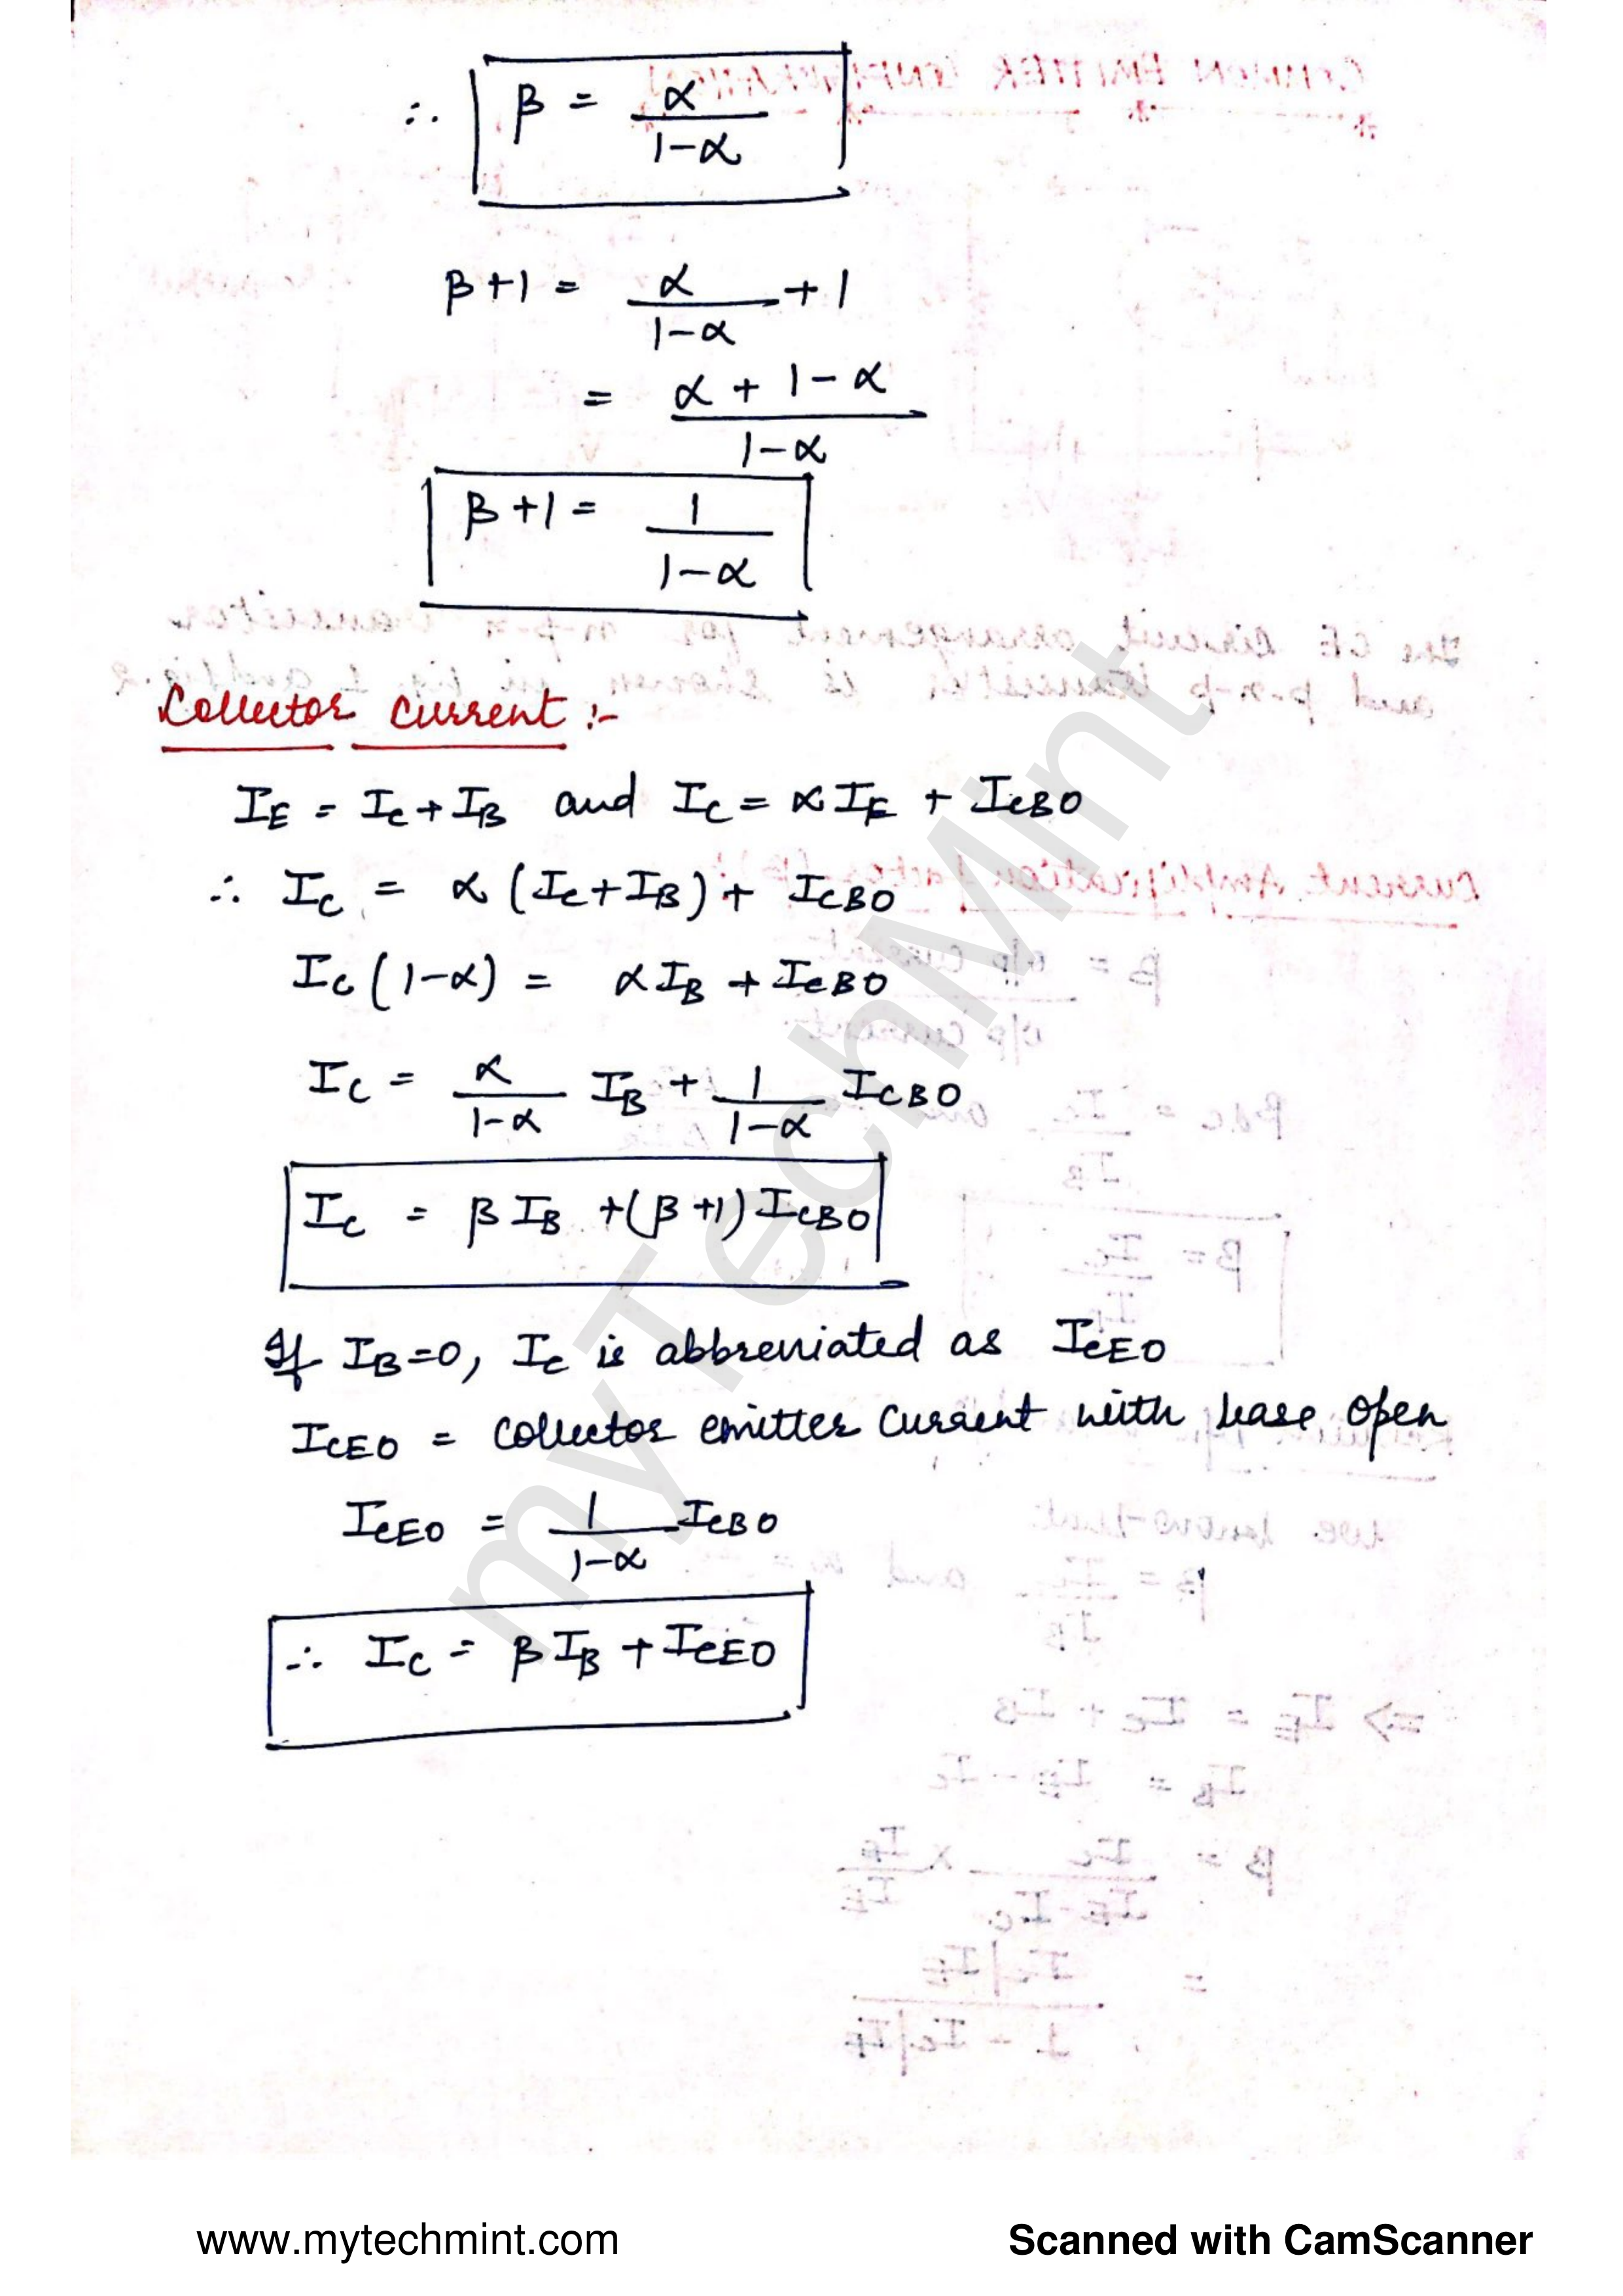 ∴ β = α / (1-α)
β+1 = α / (1-α) + 1
= (α + 1-α) / (1-α)
β+1 = 1 / (1-α)
Collector Current :-
IE = Ic + IB and Ic = αIE + ICBO
∴ Ic = α (Ic+IB) + ICBO
Ic (1-α) = αIB + ICBO
Ic = α / (1-α) IB + 1 / (1-α) ICBO
Ic = βIB + (β+1) ICBO
If IB=0, Ic is abbreviated as ICEO
ICEO = collector emitter current with base open
ICEO = 1 / (1-α) ICBO
∴ Ic = βIB + ICEO
myTechMint
www.mytechmint.com
Scanned with CamScanner